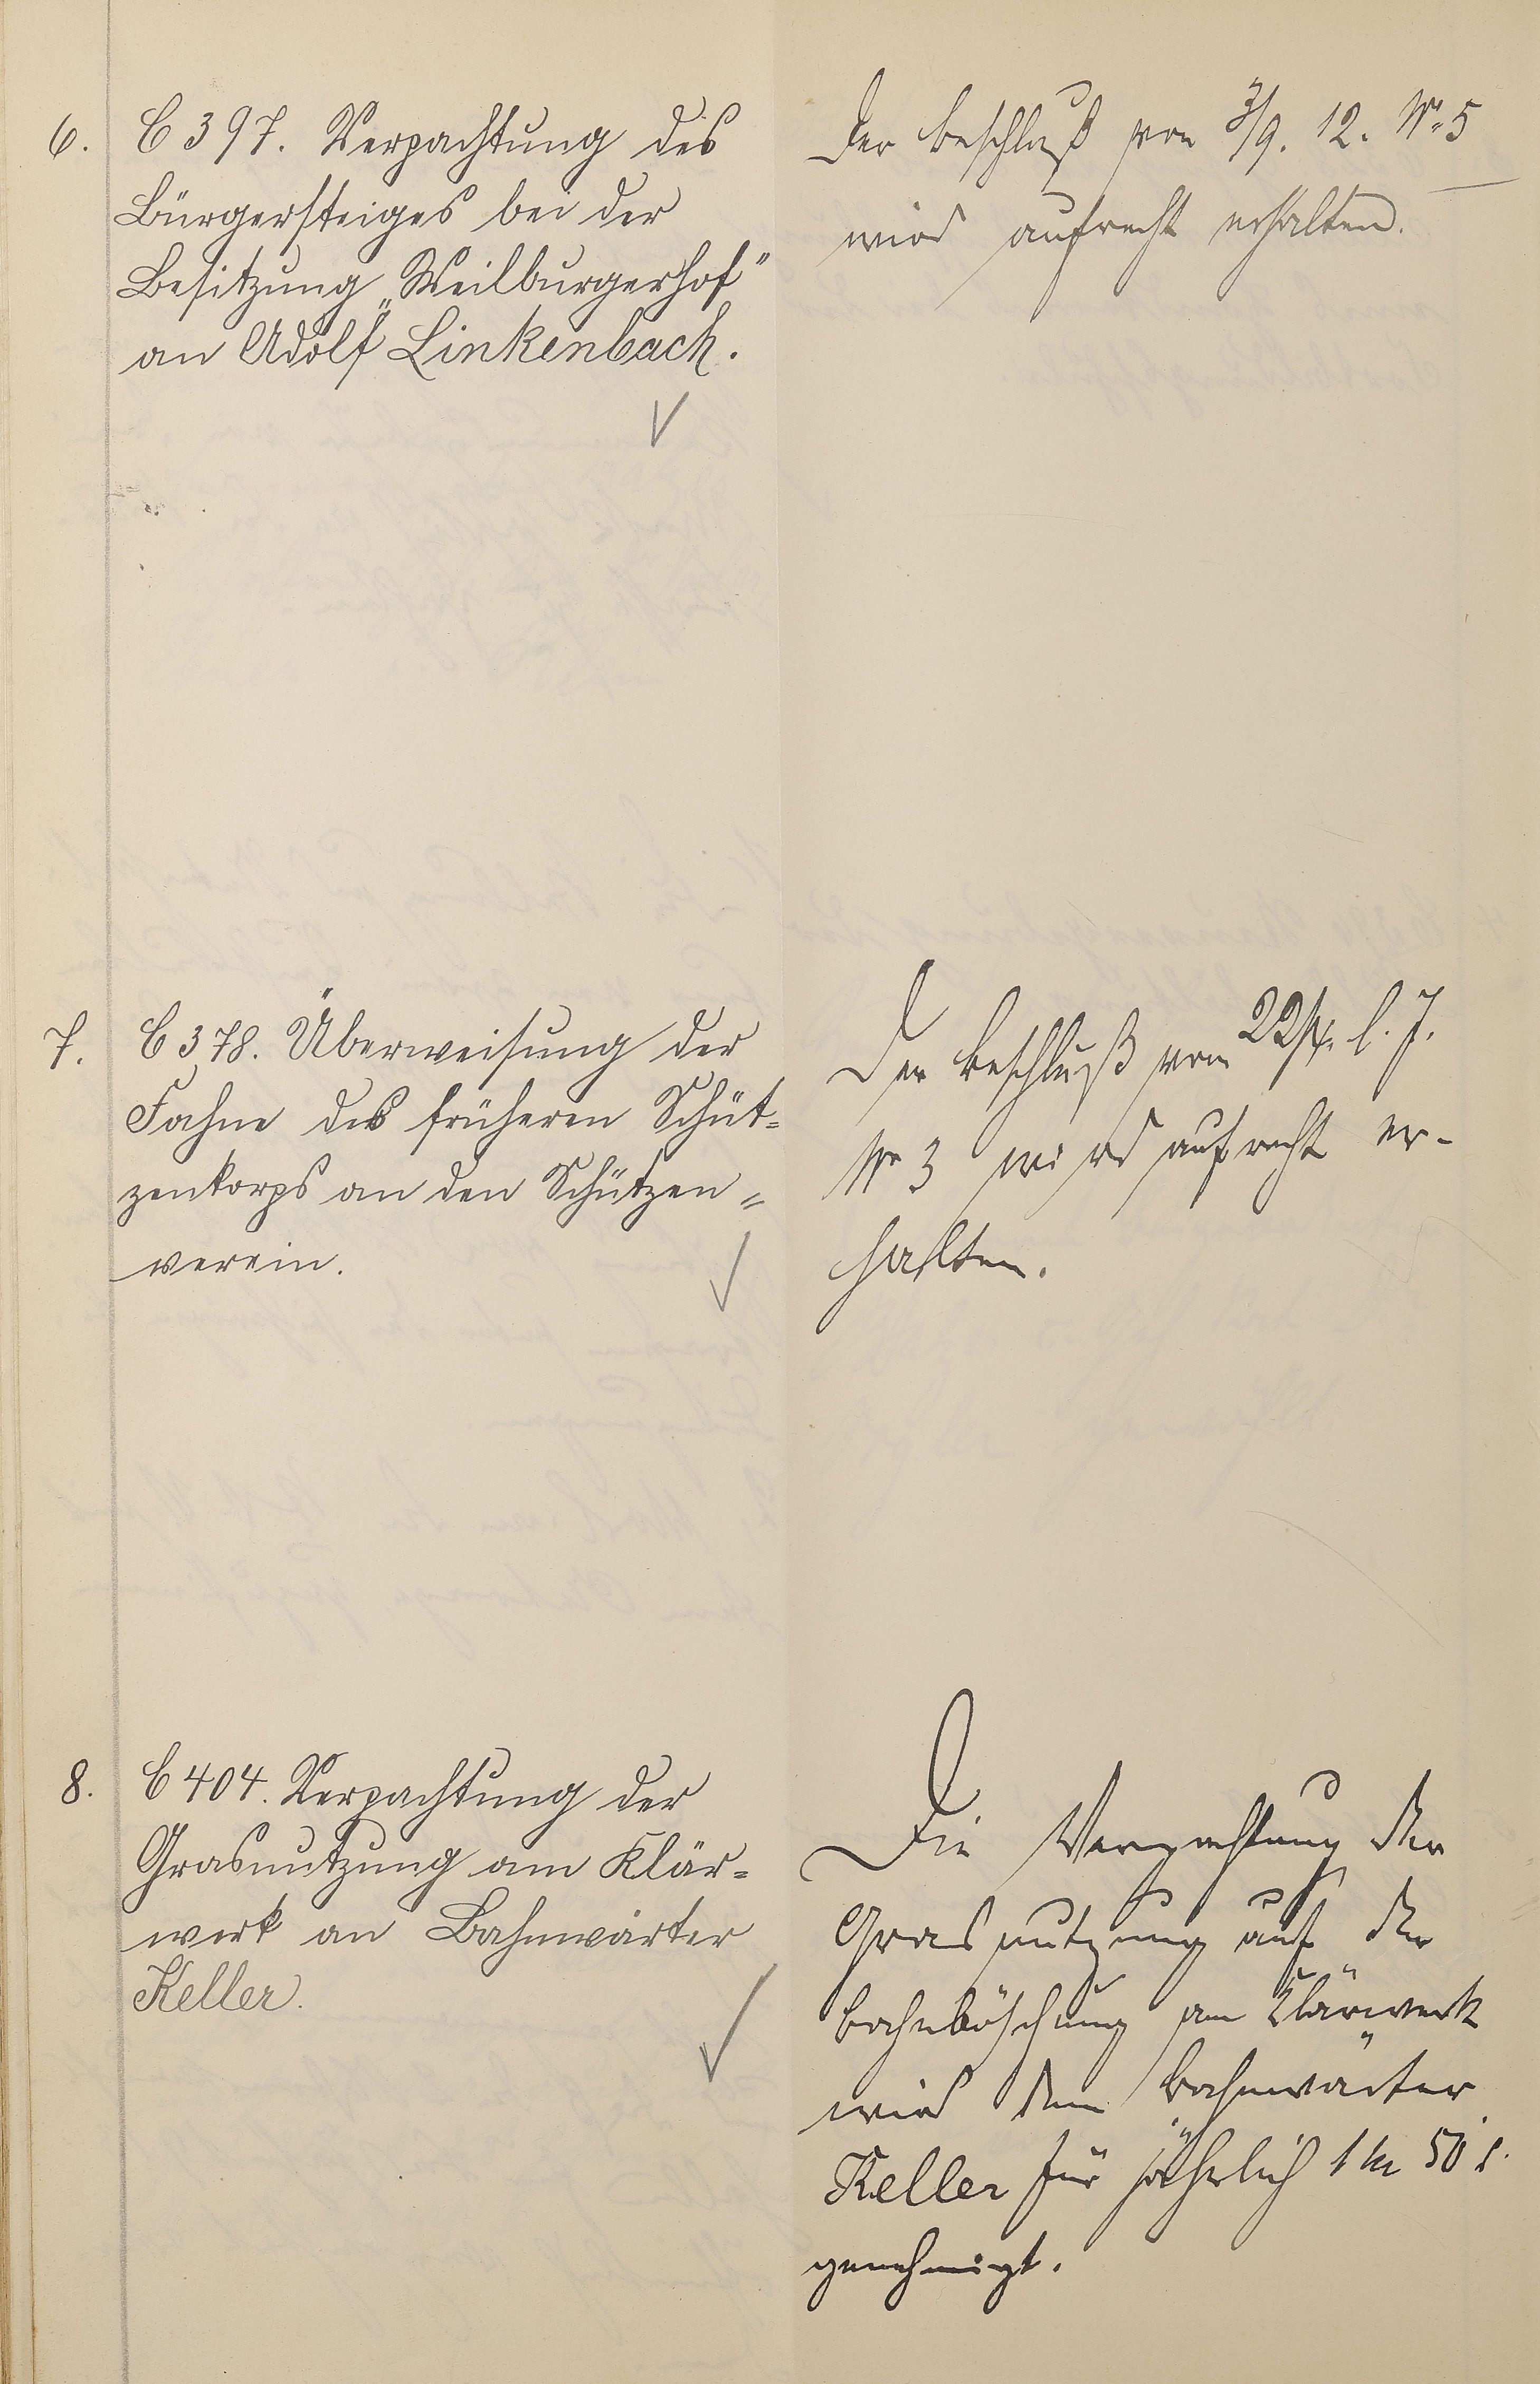 6. C 397. Verpachtung des
Bürgersteiges bei der
Besitzung „Weilburgerhof"
an Adolf Linkenbach.
Der Beschluß von 3/9. 12. No 5
wird aufrecht erhalten.
7. C 378. Überweisung der
Fahne des früheren Schüt=
zenkorps an den Schützen=
verein.
Der Beschluß vom l. J.
No 3 wird aufrecht er-
halten.
8. C 404. Verpachtung der
Grasnutzung am Klär=
werk an Bahnwärter
Keller.
Die Verpachtung der
Grasnutzung auf der
Bahnböschung am Klärwerk
wird dem Bahnwärter
Keller für jährlich 1 M 50 S.
genehmigt.